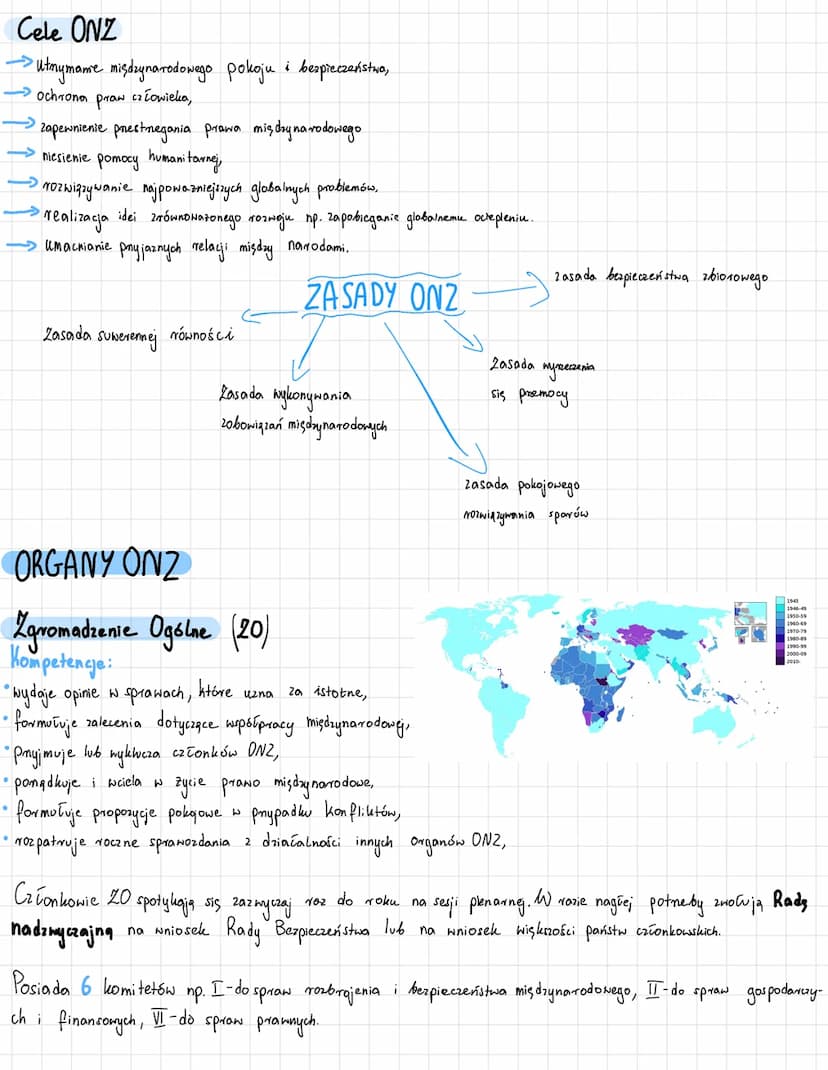 Cele ONZ
→ utrzymanie międzynarodowego pokoju i bezpieczeństwa,
→ ochrona praw człowieka,
→ zapewnienie przestrzegania prawa międzynarodowego
→ niesienie pomocy humanitarnej,
→ rozwiązywanie najpoważniejszych globalnych problemów,
→ realizacja idei zrównoważonego rozwoju np. zapobieganie globalnemu ociepleniu.
→ umacnianie przyjaznych relacji między narodami.
ZASADY ONZ
zasada bezpieczeństwa zbiorowego
Zasada suwerennej równości
Zasada wyrzeczenia
się przemocy
Zasada wykonywania
zobowiązań międzynarodowych
zasada pokojowego
rozwiązywania sporów
ORGANY ONZ
Zgromadzenie Ogólne (ZO)
Kompetencje:
• wydaje opinie w sprawach, które uzna za istotne,
• formułuje zalecenia dotyczące współpracy międzynarodowej,
• przyjmuje lub wyklucza członków ONZ,
• porządkuje i wciela w życie prawo międzynarodowe,
• formułuje propozycje pokojowe w przypadku konfliktów,
• rozpatruje roczne sprawozdania z działalności innych organów ONZ,
1945
1946-49
1950-59
1960-69
1970-79
1980-89
1990-99
2000-09
2010-
Członkowie ZO spotykają się zazwyczaj raz do roku na sesji plenarnej. W razie nagłej potrzeby zwołują Radę
nadzwyczajną na wniosek Rady Bezpieczeństwa lub na wniosek większości państw członkowskich.
Posiada 6 komitetów np. I-do spraw rozbrojenia i bezpieczeństwa międzynarodowego, II-do spraw gospodarczy-
ch i finansowych, VI-do spraw prawnych.